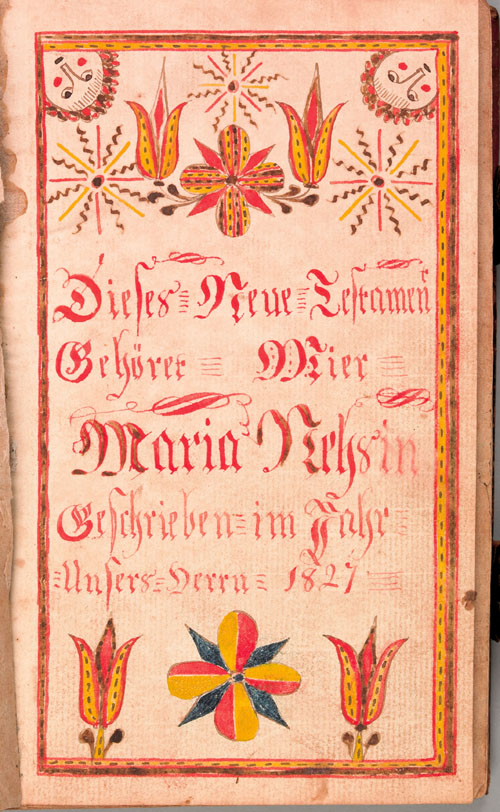 Dieses = Neue = Testamen̄
Gehöret = Mier =
Maria Nehsin
Geschrieben = im Jahr =
= Unsers = Herrn = 1827 =